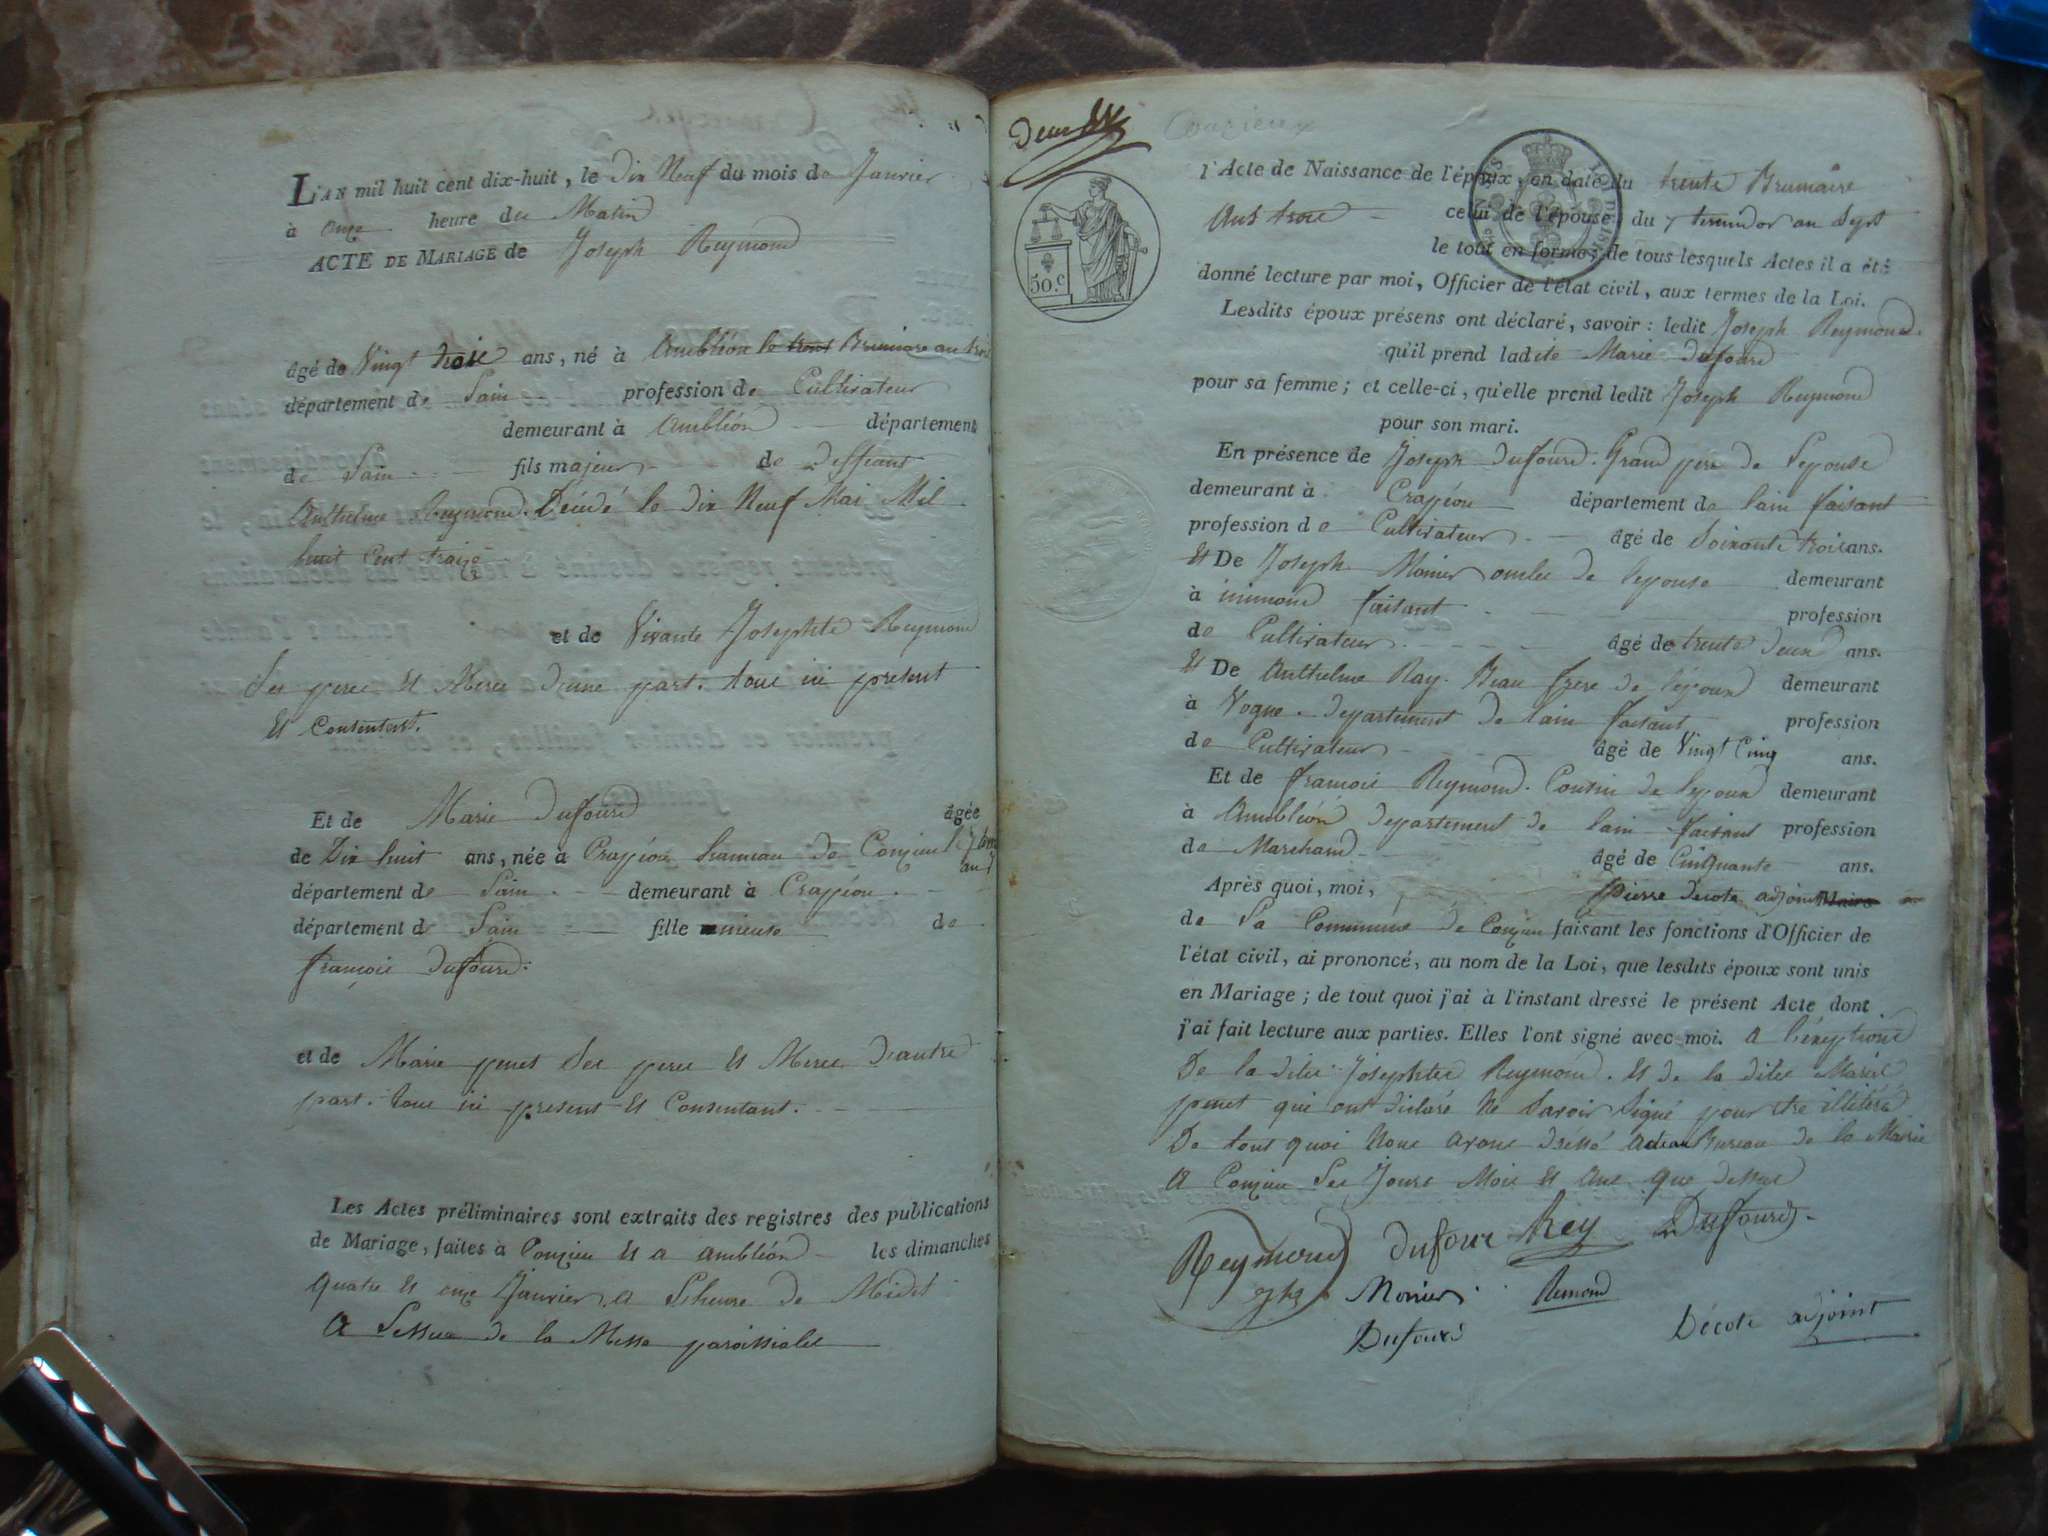 L'AN mil huit cent dix-huit, le dix Neuf du mois de Janvier
à onze heure du Matin
ACTE DE MARIAGE de Joseph Reymond
âgé de Vingt trois ans, né à Ambléon le trent Brumaire an trois
département de Lain profession de Cultivateur
demeurant à Ambléon département
de Lain fils majeur de deffeant
Anthelme Reymond. Décédé le dix Neuf Mai Mil
huit Cent traize
et de Vivante Josephte Reymond
Ses peres Et Meres d'une part. tous ici present
Et Consentent.
Et de Marie dufourd âgée
de Dix huit ans, née à Crappéou hameau de Conzieu
département de Lain demeurant à Crappéou
département de Lain fille mineuse de
françois Dufourd.
et de Marie penet Ses peres Et Meres d'autre
part. tous ici present Et Consentant.
Les Actes préliminaires sont extraits des registres des publications
de Mariage, faites à Conzieu Et a ambléon les dimanches
quatre Et onze Janvier a de Midit
A Lessue de la Messe paroissiale
Conzieux
50.c
l'Acte de Naissance de l'époux, en date du trente Brumaire
Ans trois celui de l'épouse, du 7 termidor an Sept
le tout en forme; de tous lesquels Actes il a été
donné lecture par moi, Officier de l'état civil, aux termes de la Loi.
Lesdits époux présens ont déclaré, savoir: ledit Joseph Reymond.
qu'il prend ladite Marie dufourd
pour sa femme; et celle-ci, qu'elle prend ledit Joseph Reymond
pour son mari.
En présence de Joseph dufourd. Grand pere de Lepouse
demeurant à Crappéou département de Lain faisant
profession de Cultivateur âgé de Soixante trois ans.
Et De Joseph Monier oncle de lepouse demeurant
à inimond faisant profession
de Cultivateur âgé de trente deux ans.
Et De Anthelme Ray. Beau frere de lépoux demeurant
à Vogne. departement de lain faisant profession
de Cultivateur âgé de Vingt Cinq ans.
Et de françois Reymond. Cousin de lepoux demeurant
à Ambléon departement de lain faisant profession
de Marchand âgé de Cinquante ans.
Après quoi, moi, pierre decote adjoint Maire
de La Commune de Conzieu faisant les fonctions d'Officier de
l'état civil, ai prononcé, au nom de la Loi, que lesdits époux sont unis
en Mariage; de tout quoi j'ai à l'instant dressé le présent Acte dont
j'ai fait lecture aux parties. Elles l'ont signé avec moi. a l'éxeptions
De la dite Josephte Reymond. Et de la dite Marie
penet qui ont diclaré Ne Savoir Signé pour etre illitéré
De tout quoi Nous avons dréssé Bureau de la Mairie
A Conzieu Les Jours Mois Et Ans que dessus
Reymond Dufour Rey Duffourd.
jph Monier. Remond
Dufourd Décote adjoint